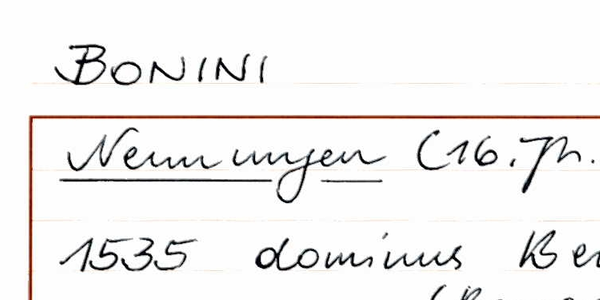 BONINI
Nennungen (16. Jh.
1535 dominus Be
(B